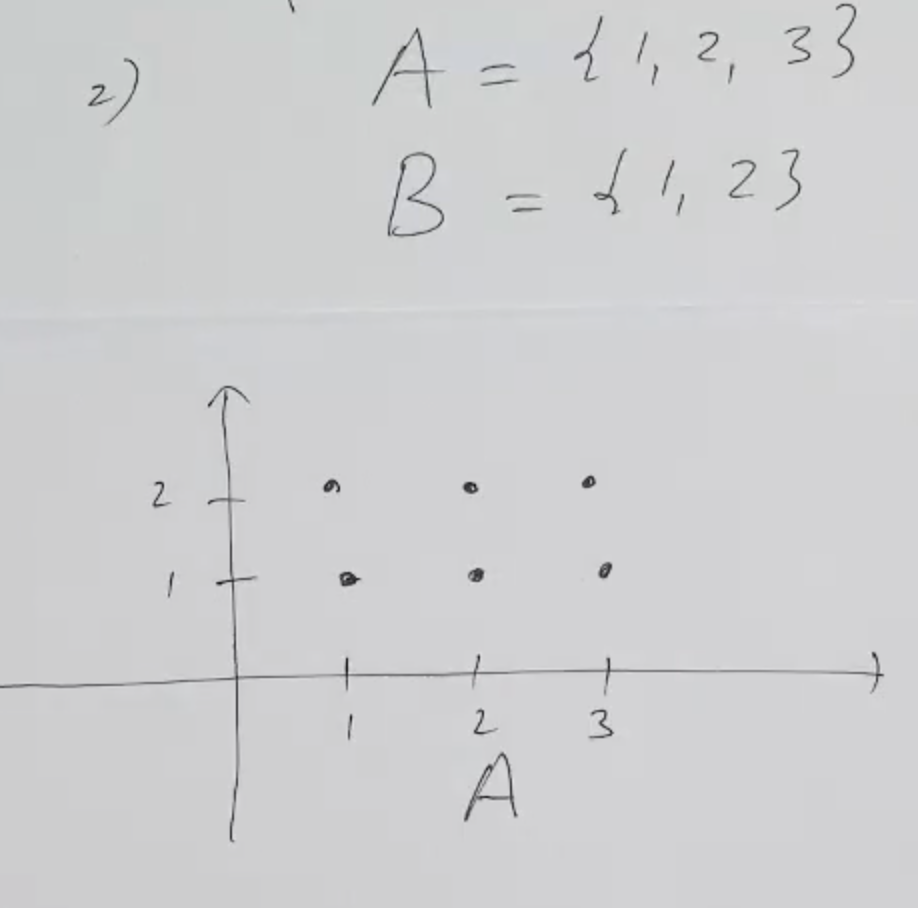 2) A = {1, 2, 3}
B = {1, 2}
2
1
1 2 3
A